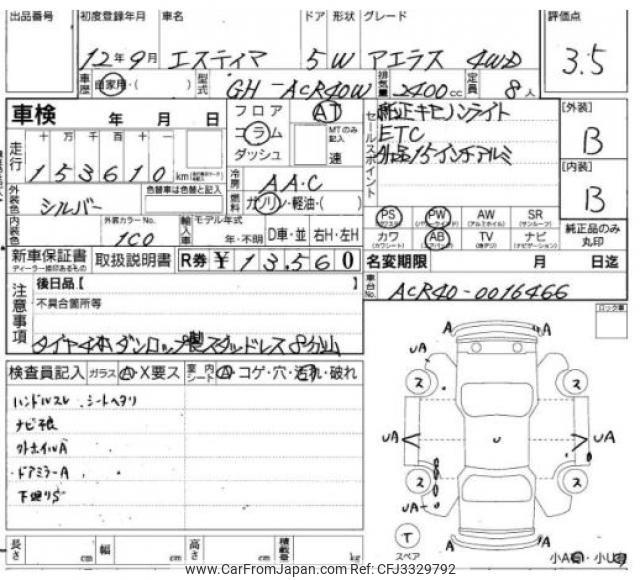 出品番号 初度登録年月 車名 ドア 形状 グレード 評価点
12年9月 エスティマ 5W アエラス 4WD 3.5
車歴 自家用・( ) 型式 GH-ACR40W 排気量 2400cc 定員 8人
車検 年 月 日
フロア コラム ダッシュ AT MTのみ記入 速
セールスポイント 純正キセノンライト
ETC
外品15インチアルミ
[外装] B
[内装] B
走行 十 万 千 百 十 一
153610km
冷房 AAC
外装色 シルバー 色替車は色替と記入
燃料 ガソリン・軽油・( )
内装色 外装カラーNo. 1C0 輸入車 モデル年式 年・不明 D車・並 右H・左H
PS PW AW (アルミホイル) SR (サンルーフ)
カワ (カワシート) AB (エアバッグ) TV ナビ (ナビゲーション)
純正品のみ丸印
新車保証書 ディーラー捺印あるもの 取扱説明書 R券 ¥13,560
名変期限 月 日迄
車台No. ACR40-0016466
注意事項 後日品【 】
不具合箇所等
タイヤ4本ダンロップ製スタッドレス8分山
ロック車
検査員記入 ガラス A・X要ス 室内シート A・コゲ・穴・汚れ・破れ
ハンドルスレ シートヘタリ
ナビ不良
外ホイルA
ドアミラーA
下廻りS
A A
UA
ス ス
UA U UA
ス ス
UA
T スペア
A A
小A・小U
長さ cm 幅 cm 高さ cm 積載量 kg
www.CarFromJapan.com Ref:CFJ3329792